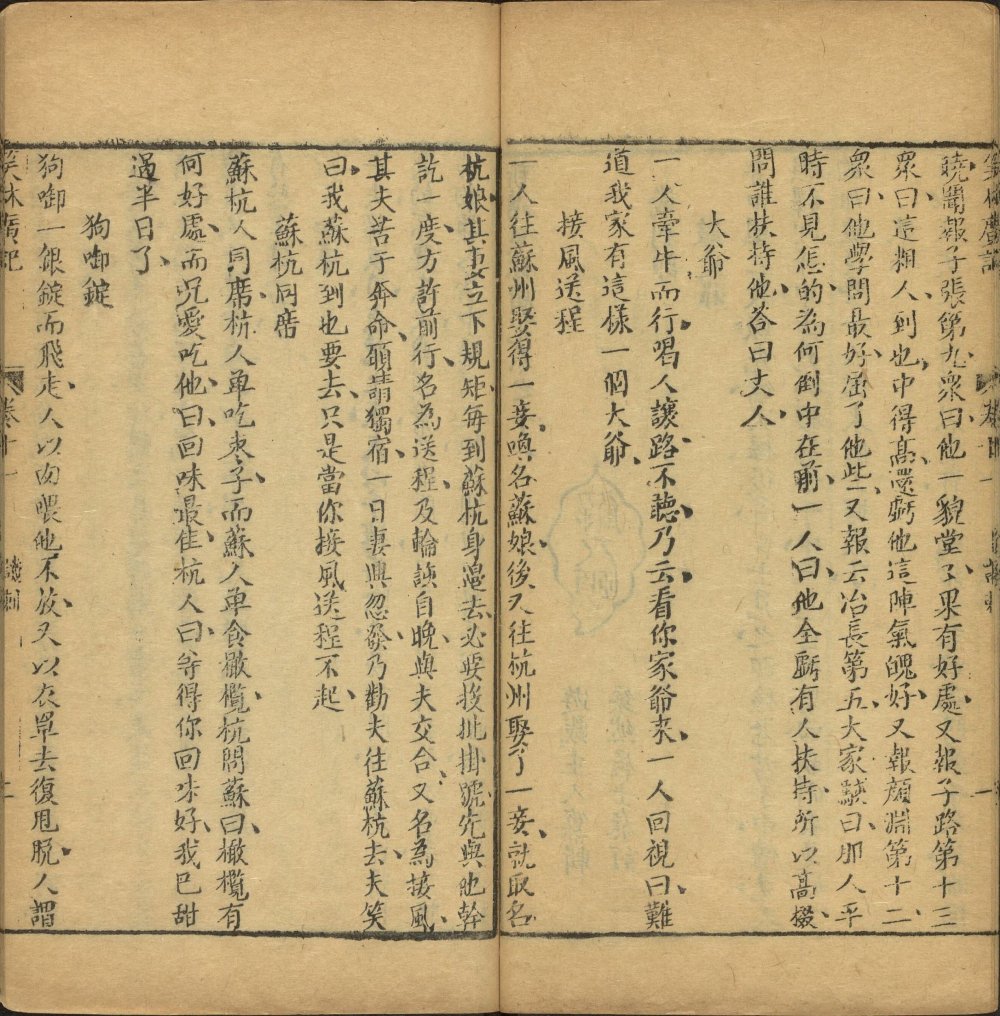 曉聞報子張第九衆曰他一貌堂〻果有好處又報子路第十三
衆曰這粗人到也中得高還虧他這陣氣魄好又報顏淵第十二
衆曰他學問最好屈了他些又報云冶長第五大家駭曰那人平
時不見怎的為何倒中在前一人曰他全虧有人扶持所以高掇
問誰扶持他答曰丈人
大爺
一人牽牛而行喝人讓路不聽乃云看你家爺來一人回視曰難
道我家有這樣一個大爺
接風送程
一人往蘇州娶得一妾喚名蘇娘後又往杭州娶了一妾就取名
杭娘其妻立下規矩每到蘇杭身邊去必要投批掛號先與他幹
訖一度方許前行名為送程及輪該自晚與夫交合又名為接風
其夫苦于奔命願請獨宿一日妻興忽發乃勸夫往蘇杭去夫笑
曰我蘇杭到也要去只是當你接風送程不起
蘇杭同席
蘇杭人同席杭人单吃枣子而蘇人单食橄欖杭問蘇曰橄欖有
何好處而兄愛吃他曰回味最佳杭人曰等得你回味好我已甜
過半日了
狗啣錠
狗啣一銀錠而飛走人以肉喂他不放又以衣罩去復甩脫人謂
笑林廣記
卷十一
譏刺
二